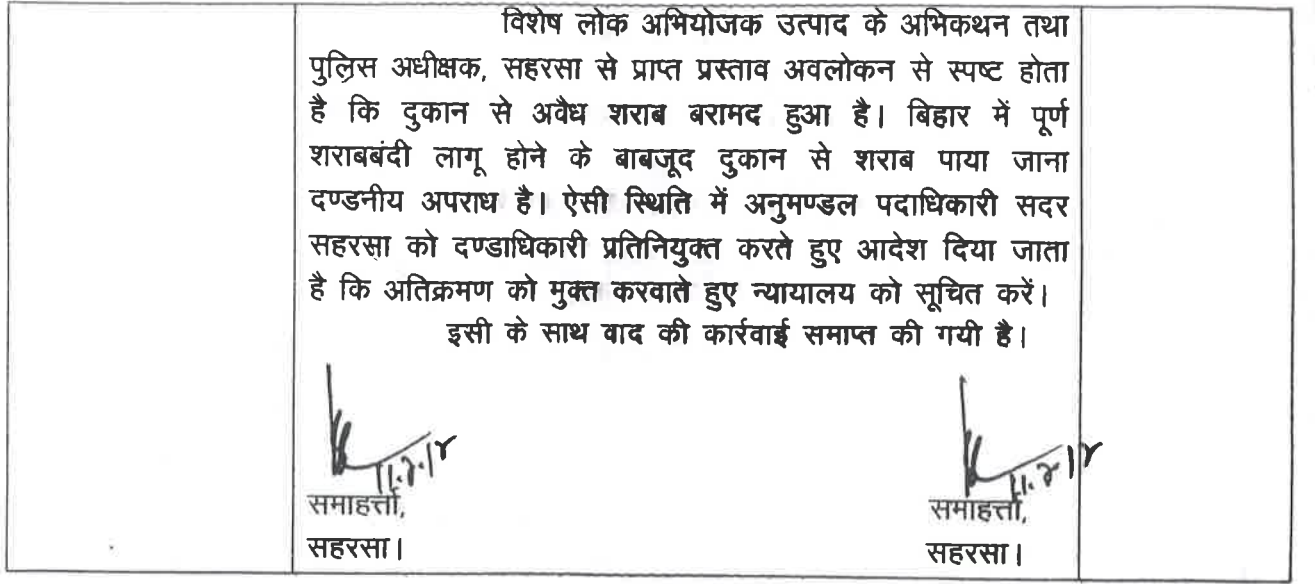 विशेष लोक अभियोजक उत्पाद के अभिकथन तथा
पुलिस अधीक्षक, सहरसा से प्राप्त प्रस्ताव अवलोकन से स्पष्ट होता
है कि दुकान से अवैध शराब बरामद हुआ है। बिहार में पूर्ण
शराबबंदी लागू होने के बाबजूद दुकान से शराब पाया जाना
दण्डनीय अपराध है। ऐसी स्थिति में अनुमण्डल पदाधिकारी सदर
सहरसा को दण्डाधिकारी प्रतिनियुक्त करते हुए आदेश दिया जाता
है कि अतिक्रमण को मुक्त करवाते हुए न्यायालय को सूचित करें।
इसी के साथ वाद की कार्रवाई समाप्त की गयी है।
समाहर्त्ता, समाहर्त्ता,
सहरसा। सहरसा।